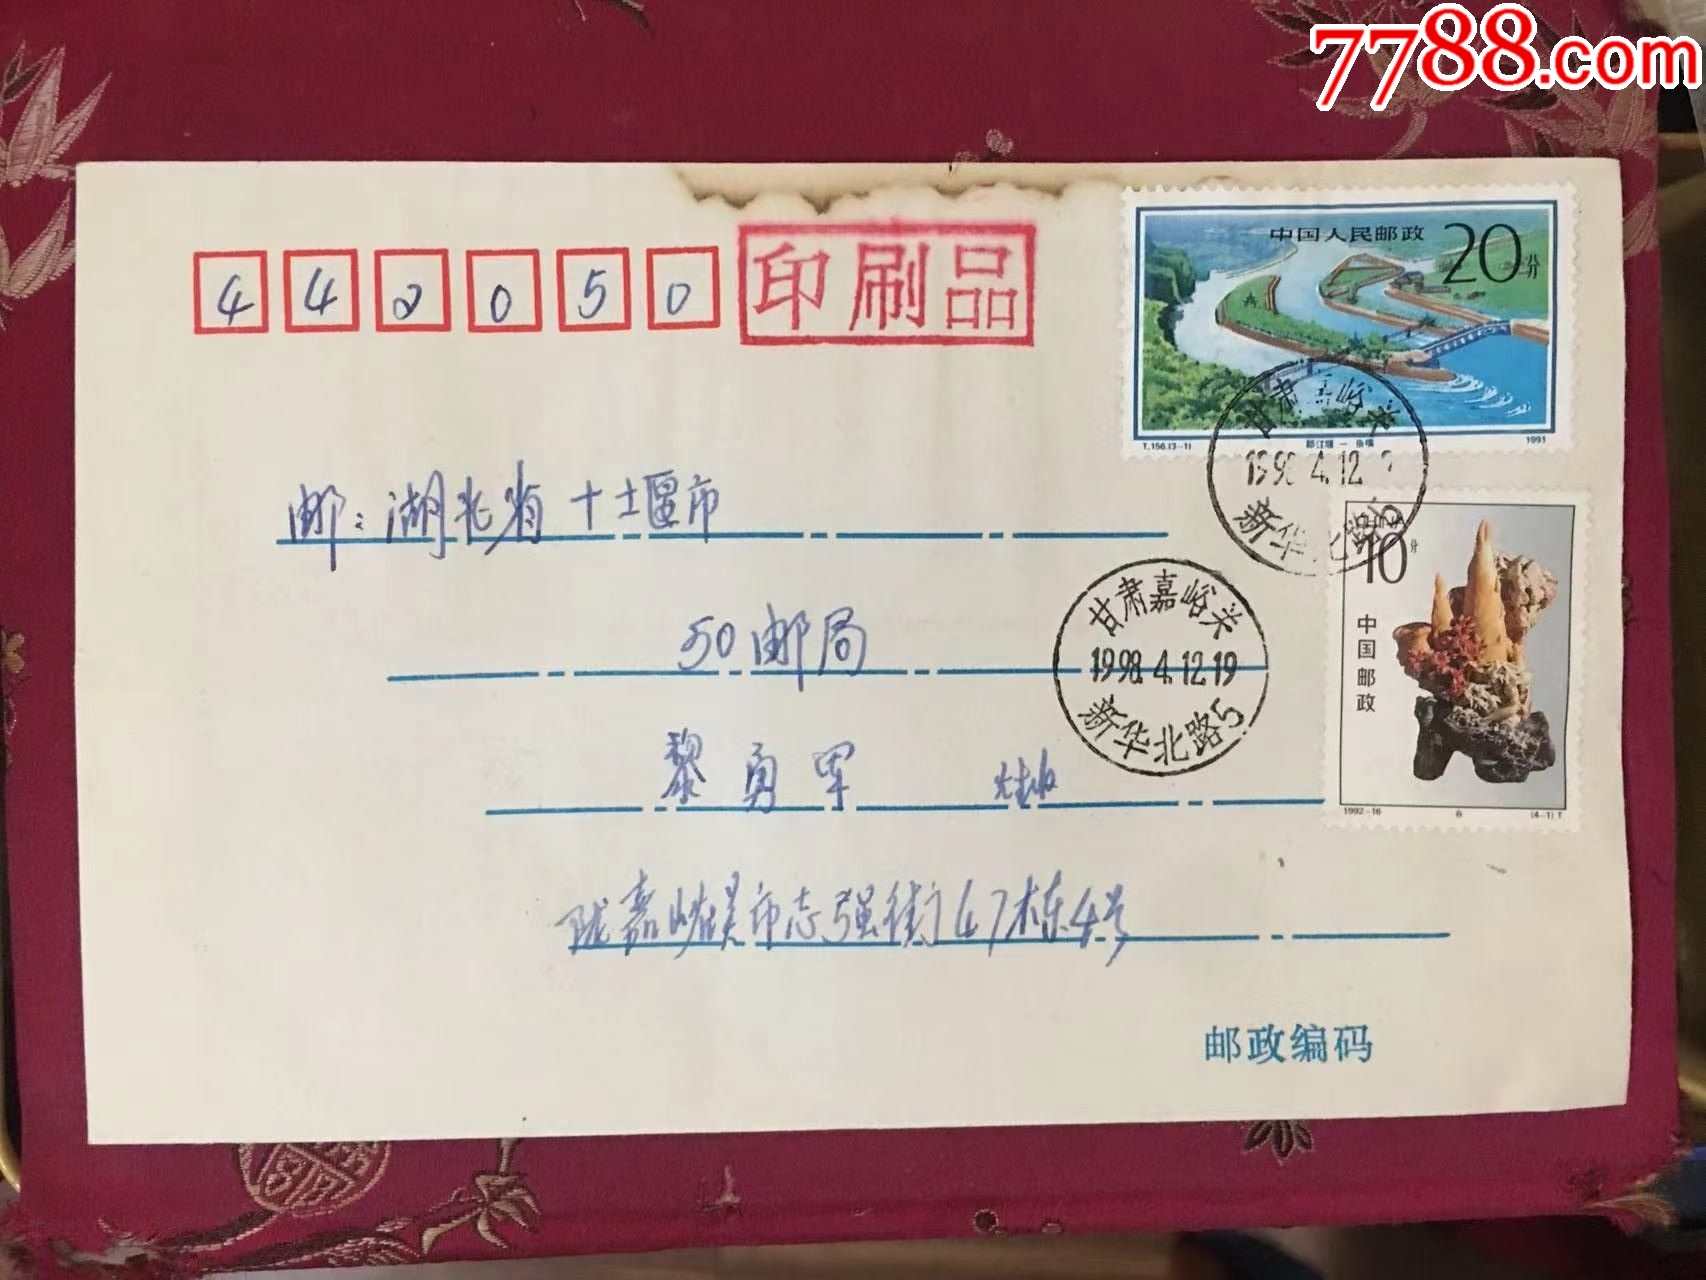 7788.com
442050
印刷品
中国人民邮政 20分
T.156.(3-1) 都江堰 — 鱼嘴 1991
甘肃嘉峪关
1998.4.12
新华北路
邮:湖北省十堰市
10分
中国邮政
1992-16 6 (4-1) T
50邮局
甘肃嘉峪关
1998.4.12.19
新华北路5
黎勇军 收
嘉峪关市志强街47栋4号
邮政编码